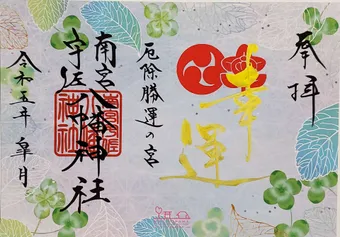 奉拝
幸運
厄除勝運の宮
南宮八幡神社
宇佐八幡神社
令和五年 皐月